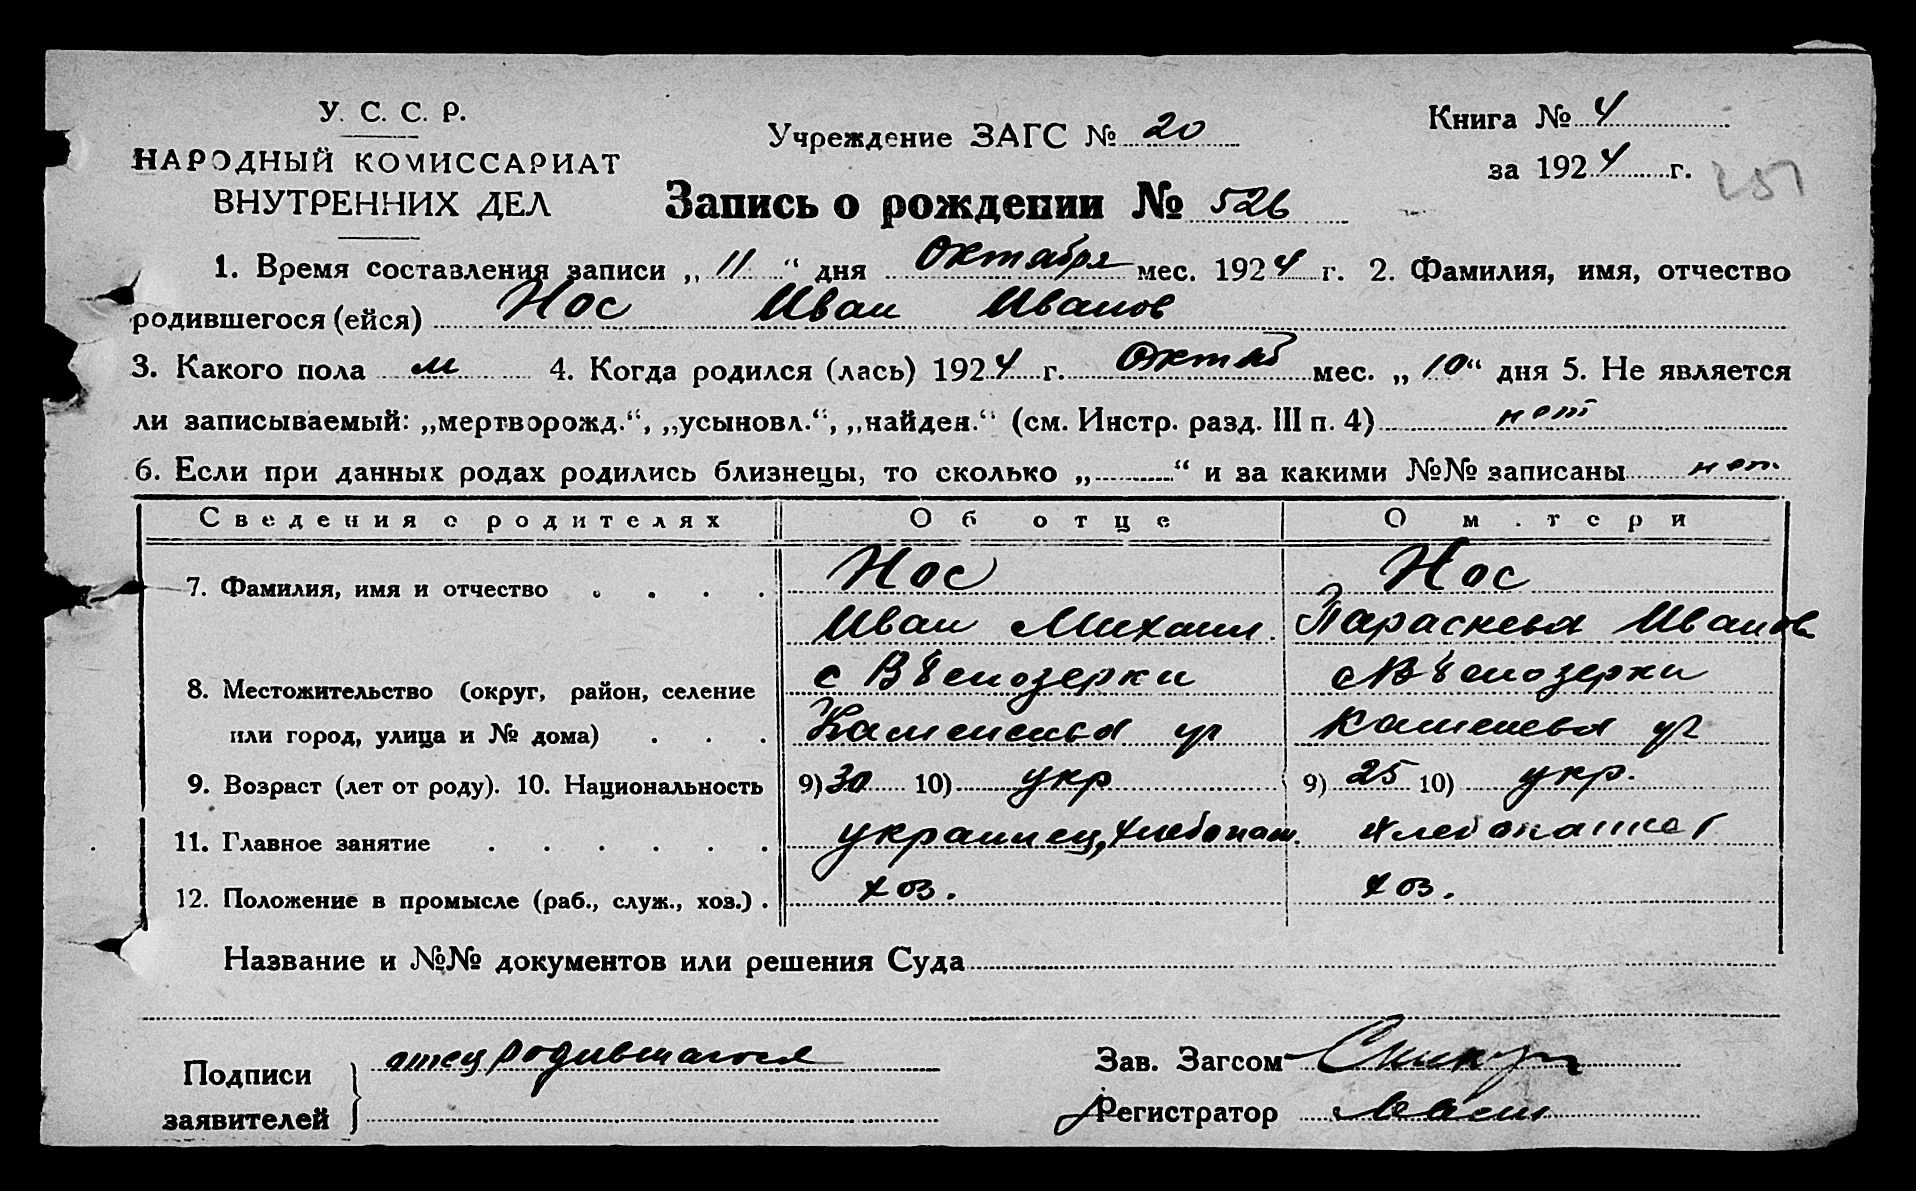 У. С. С. Р.
НАРОДНЫЙ КОМИССАРИАТ
ВНУТРЕННИХ ДЕЛ
Учреждение ЗАГС № 20
Книга № 4
за 1924 г.
Запись о рождении № 526
1. Время составления записи „11“ дня Октября мес. 1924 г. 2. Фамилия, имя, отчество
родившегося (ейся) Нос Иван Иванов
3. Какого пола м 4. Когда родился (лась) 1924 г. Октяб мес. „10“ дня 5. Не является
ли записываемый: „мертворожд.“, „усыновл.“, „найден.“ (см. Инстр. разд. III п. 4) нет
6. Если при данных родах родились близнецы, то сколько „ “ и за какими №№ записаны нет.
Сведения о родителях Об отце О м.тери
7. Фамилия, имя и отчество Нос Нос
Иван Михаил. Параскевья Иванов
8. Местожительство (округ, район, селение с Веселозерки
или город, улица и № дома) Каменевья ул Каменевья ул
9. Возраст (лет от роду). 10. Национальность 9) 30 10) укр 9) 25 10) укр.
11. Главное занятие украинец, хлебопаш. хлебопашест
12. Положение в промысле (раб., служ., хоз.) хоз. хоз.
Название и №№ документов или решения Суда
Подписи
заявителей
отец родившагося
Зав. Загсом
Регистратор